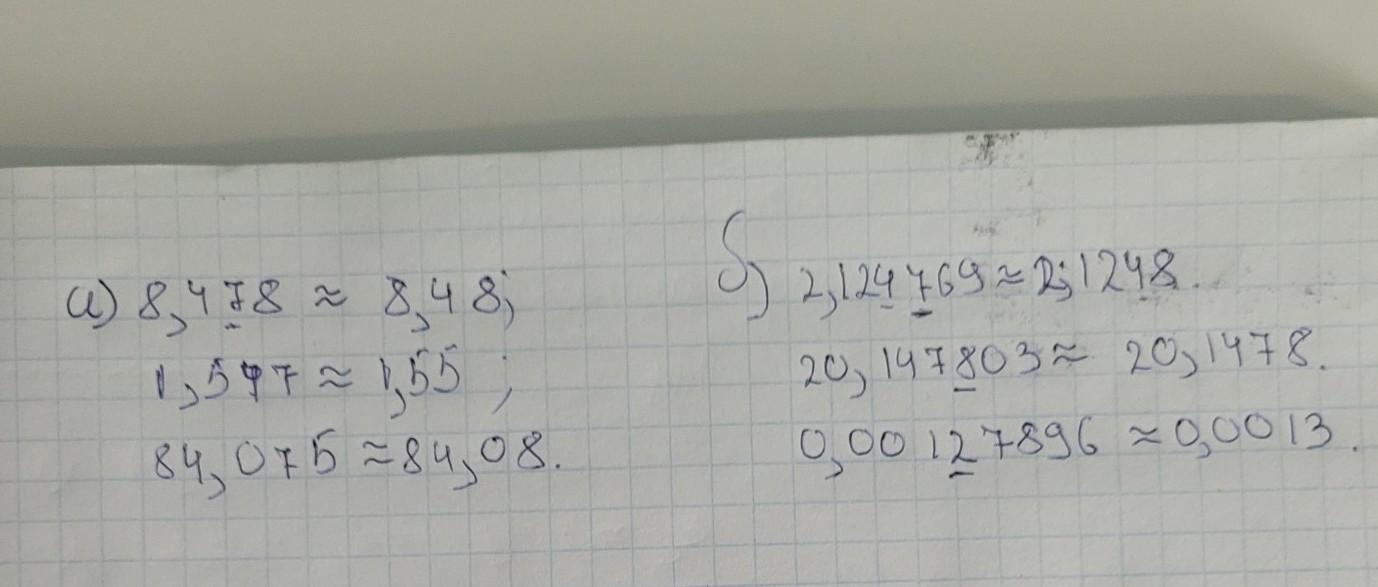 а) 8,478 ≈ 8,48;
1,547 ≈ 1,55;
84,075 ≈ 84,08.
б) 2,124769 ≈ 2,1248.
20,147803 ≈ 20,1478.
0,00127896 ≈ 0,0013.